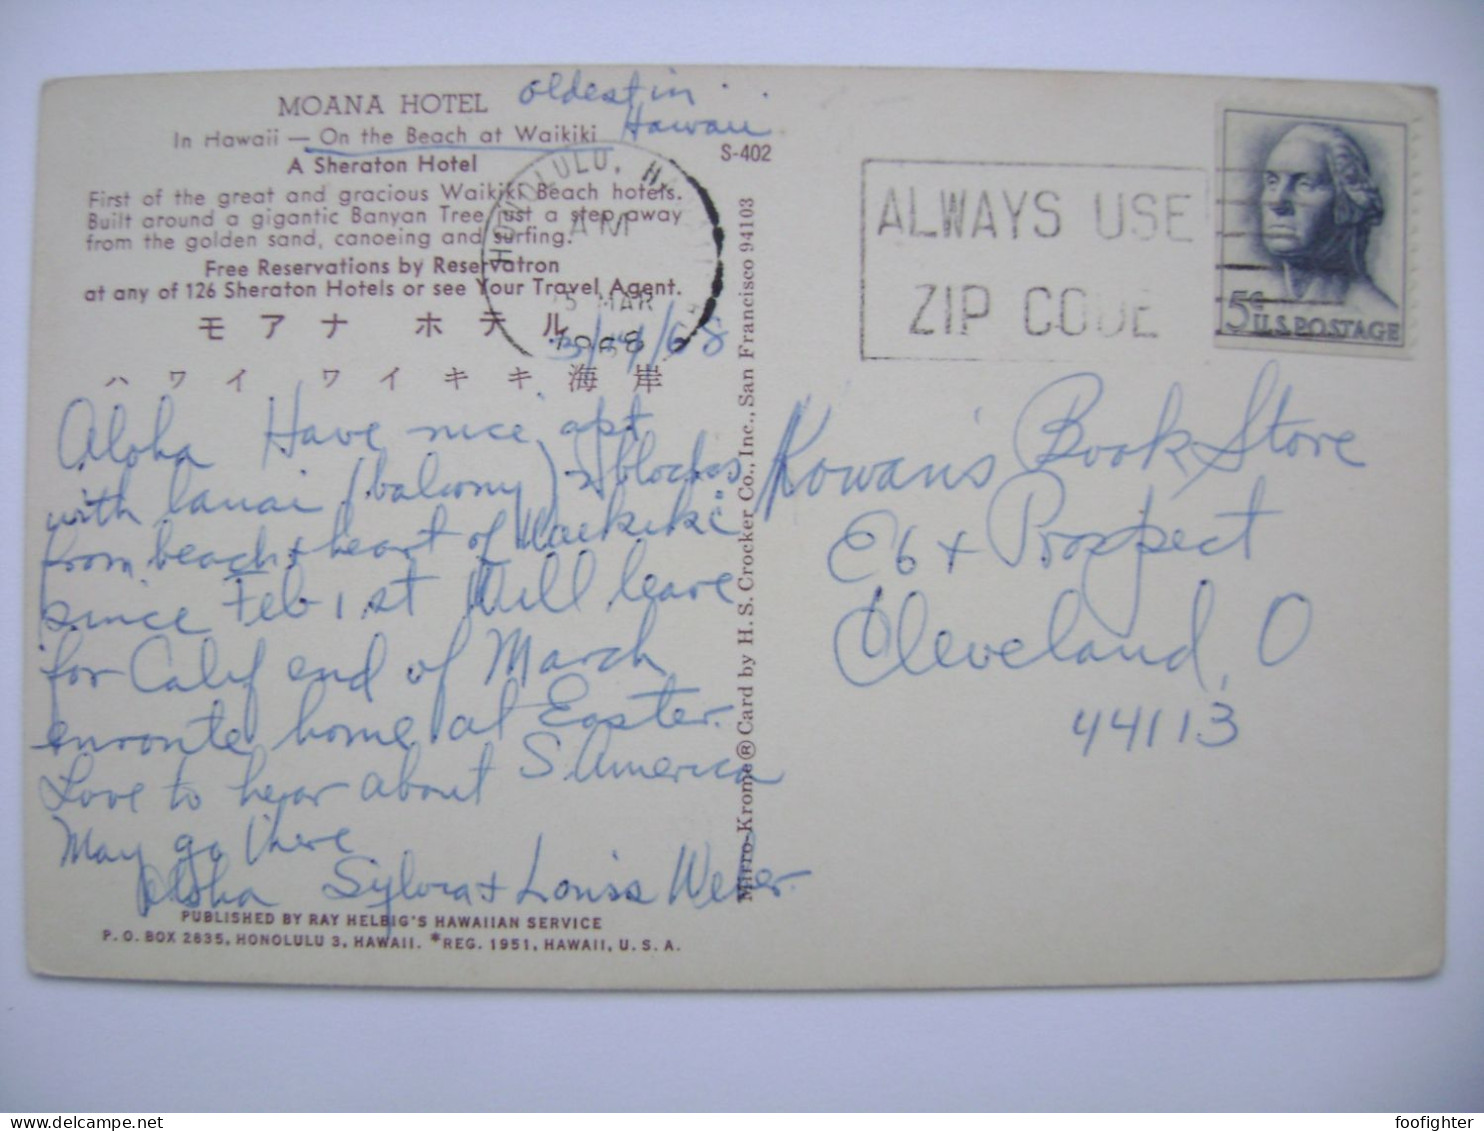 MOANA HOTEL oldest in
In Hawaii — On the Beach at Waikiki Hawaii
A Sheraton Hotel
S-402
First of the great and gracious Waikiki Beach hotels.
Built around a gigantic Banyan Tree just a step away
from the golden sand, canoeing and surfing.
Free Reservations by Reservatron
at any of 126 Sheraton Hotels or see Your Travel Agent.
モアナ ホテル
ハワイ ワイキキ海岸
HONOLULU, H
AM
5 MAR
1968
3/4/68
Aloha Have nice apt
with lanai (balcony) 2 blocks
from beach & "heart of Waikiki"
since Feb 1st Will leave
for Calif end of March
enroute home at Easter.
Love to hear about S. America
May go there
Aloha Sylvia & Louis Weber
PUBLISHED BY RAY HELBIG'S HAWAIIAN SERVICE
P. O. BOX 2835, HONOLULU 3, HAWAII. *REG. 1951, HAWAII, U. S. A.
Mirro-Krome® Card by H. S. Crocker Co., Inc., San Francisco 94103
ALWAYS USE
ZIP CODE
5¢
U.S. POSTAGE
Kowan's Book Store
E 6 + Prospect
Cleveland, O
44113
foofighter